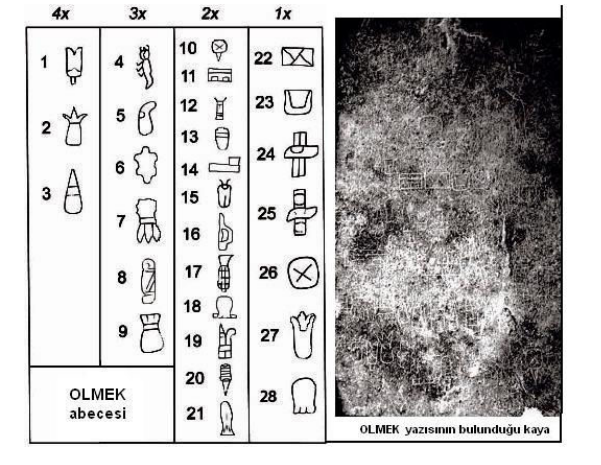 4x 3x 2x 1x
1
2
3
4
5
6
7
8
9
10
11
12
13
14
15
16
17
18
19
20
21
22
23
24
25
26
27
28
OLMEK
abecesi
OLMEK yazısının bulunduğu kaya